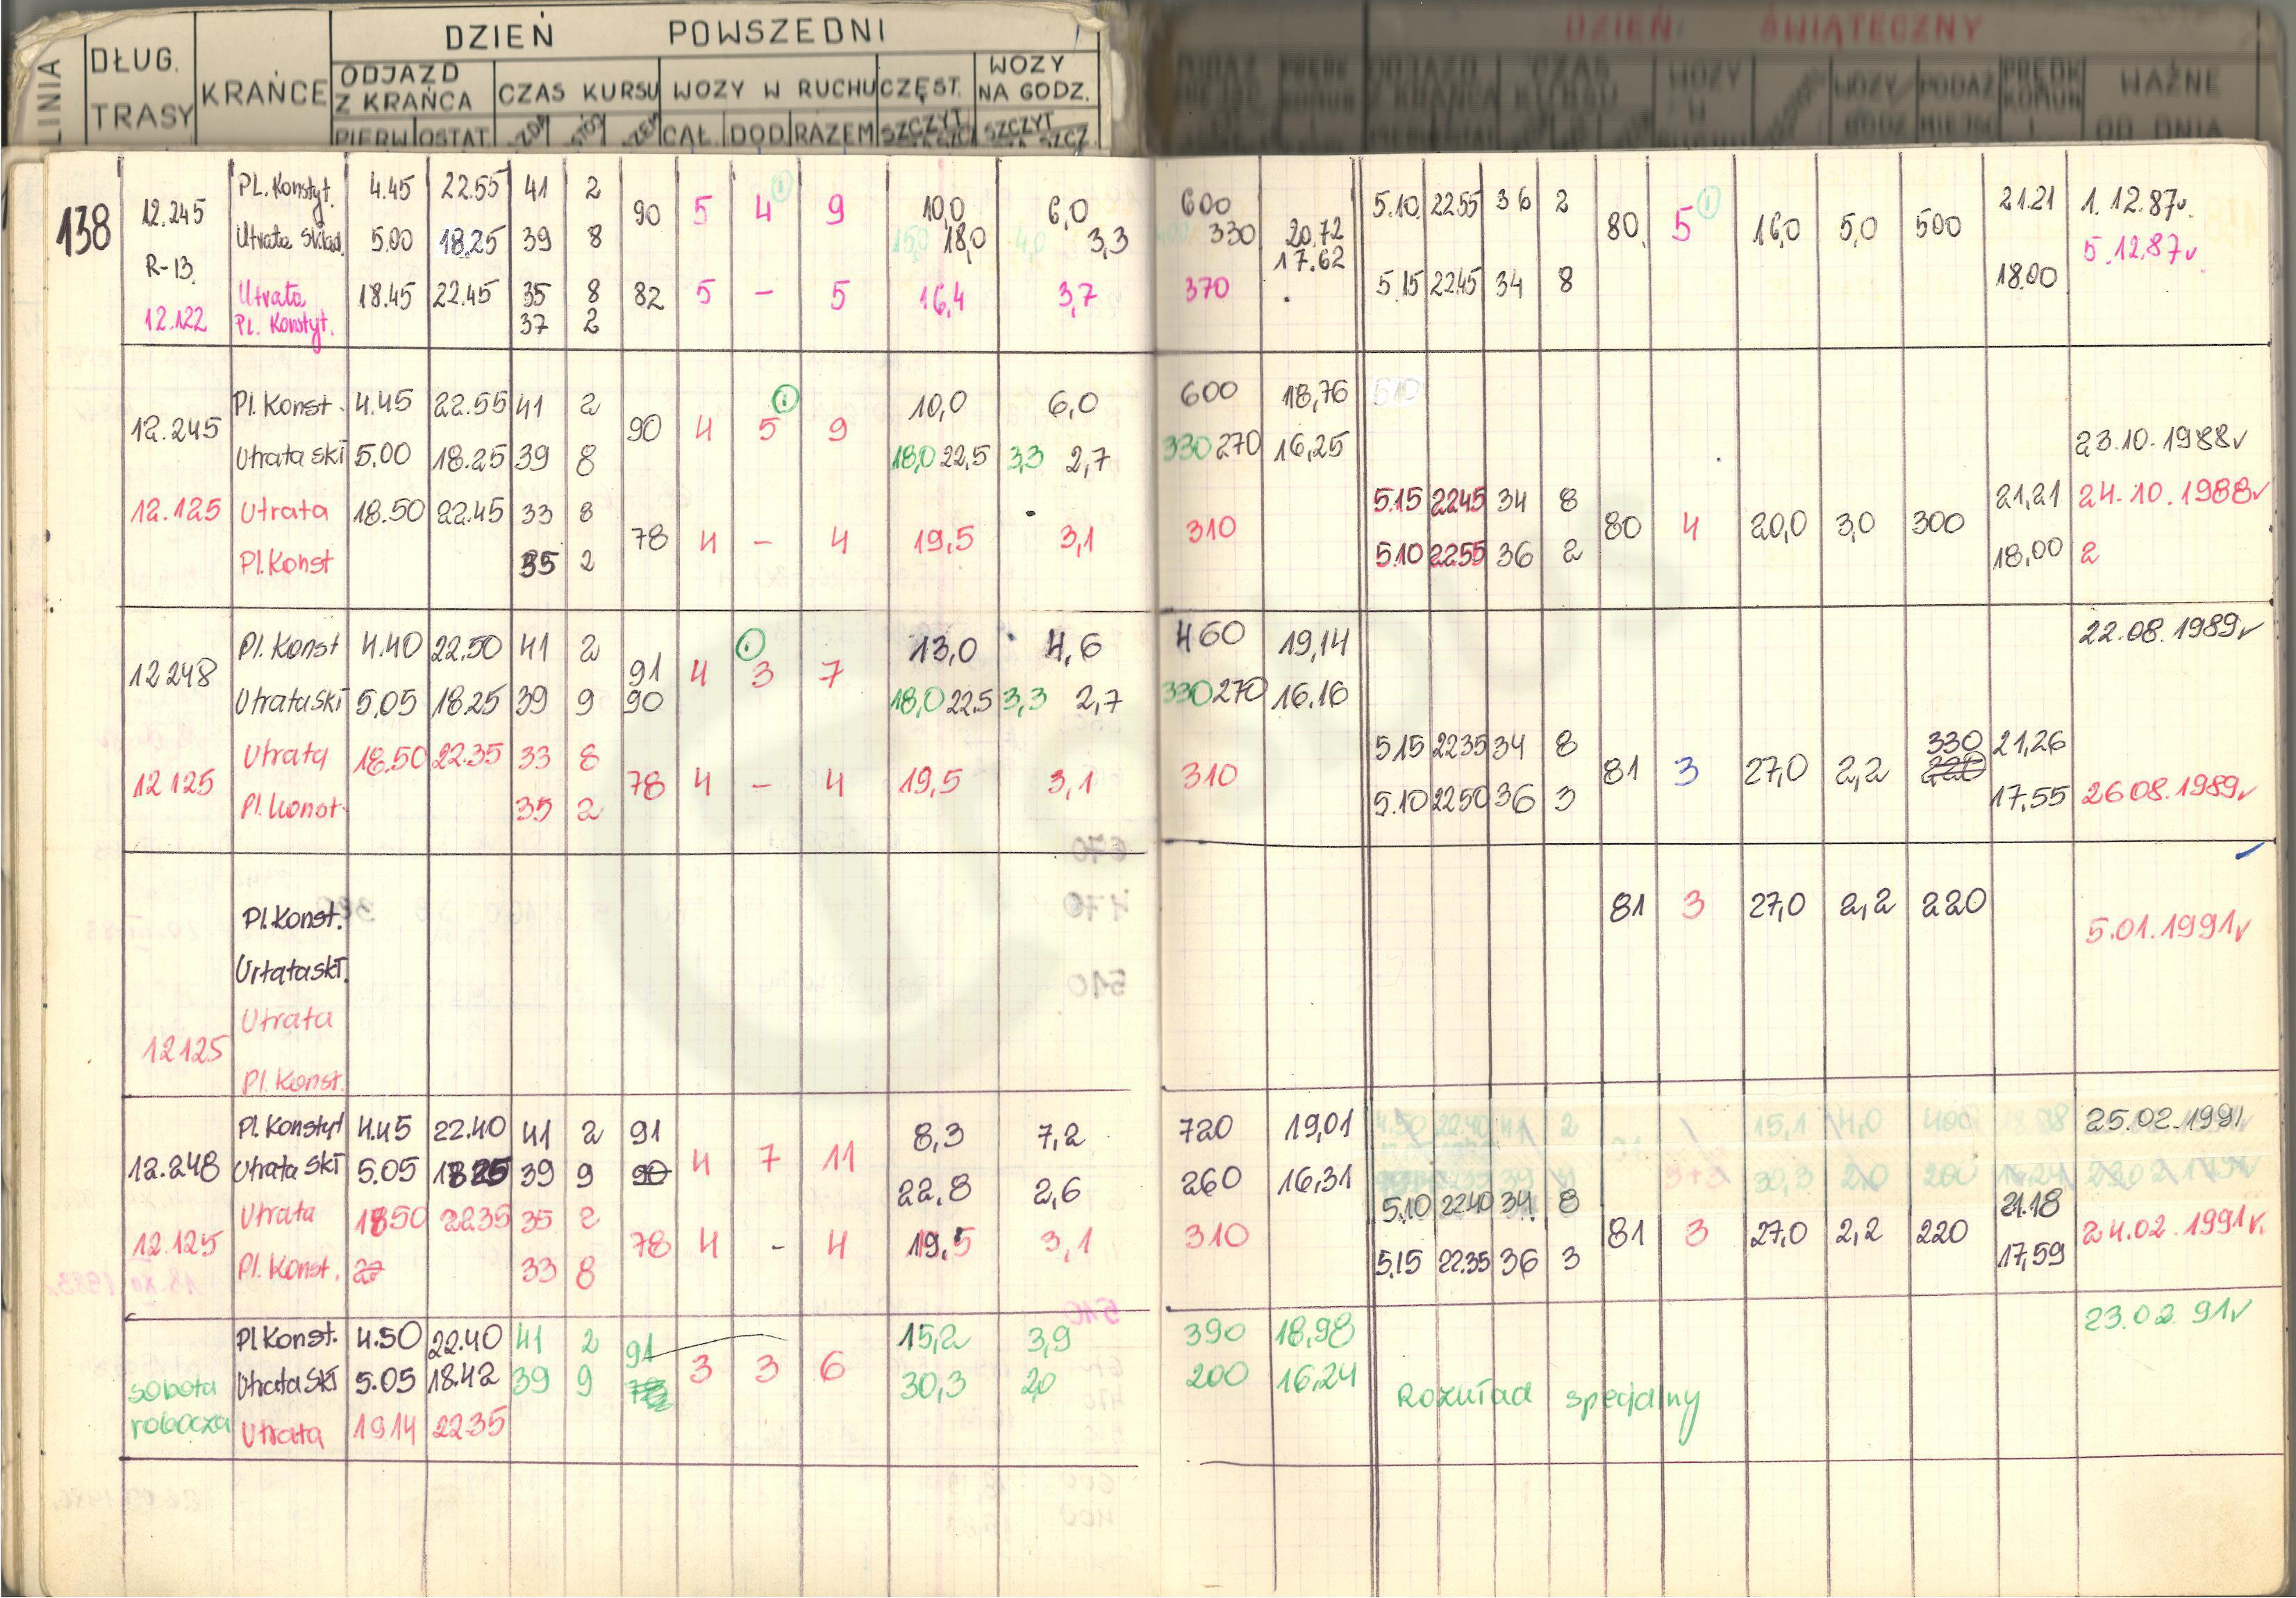 DZIEŃ POWSZEDNI
DZIEŃ ŚWIĄTECZNY
LINIA
DŁUG. TRASY
KRAŃCE
ODJAZD Z KRAŃCA
CZAS KURSU
WOZY W RUCHU
CZĘST.
WOZY NA GODZ.
PIERW OSTAT. CAŁ. DOD RAZEM SZCZYT SZCZYT
WAŻNE OD DNIA
138
12.245 PL. Konstyt. 4.45 22.55 41 2 90 5 4 9 10,0 6,0 600 20.72 5.10 2255 36 2 80 5 16,0 5,0 500 21.21 1.12.87r.
R-13 Utrata Skład. 5.00 18.25 39 8 15,0 18,0 4,0 3,3 330 17.62 5.12.87r
Utrata 18.45 22.45 35 8 82 5 - 5 16,4 3,7 370 5.15 2245 34 8 18.00
12.122 PL. Konstyt. 37 2
12.245 Pl. Konst. 4.45 22.55 41 2 90 4 5 9 10,0 6,0 600 18,76 510
Utrata skł 5.00 18.25 39 8 18,0 22,5 3,3 2,7 330 270 16,25 23.10.1988r
12.125 Utrata 18.50 22.45 33 8 78 4 - 4 19,5 3,1 310 5.15 2245 34 8 80 4 20,0 3,0 300 21,21 24.10.1988r
Pl. Konst 35 2 5.10 2255 36 2 18,00 2
12248 Pl. Konst 4.40 22.50 41 2 91 4 3 7 13,0 4,6 460 19,14 22.08.1989r
Utrata skł 5.05 18.25 39 9 90 18,0 22.5 3,3 2,7 330 270 16.16
12125 Utrata 18.50 22.35 33 8 78 4 - 4 19,5 3,1 310 5.15 2235 34 8 81 3 27,0 2,2 330 220 21,26
Pl. Konst. 35 2 5.10 2250 36 3 17.55 26 08.1989r
Pl. Konst. 81 3 27,0 2,2 220 5.01.1991r
Urtata skł.
Utrata
12125
Pl. Konst.
12.248 Pl. Konstyt 4.45 22.40 41 2 91 4 7 11 8,3 7,2 720 19,01 4.50 22.40 41 2 15,1 4,0 400 25.02.1991
Utrata Skł 5.05 1825 39 9 90 22,8 2,6 260 16,31 3+3 30,3 2,0 200
12.125 Utrata 1850 2235 35 2 78 4 - 4 19,5 3,1 310 5.10 2240 34 8 81 3 27,0 2,2 220 21.18 24.02.1991r.
Pl. Konst. 33 8 5.15 22.35 36 3 17,59
Pl Konst. 4.50 22.40 41 2 91 3 3 6 15,2 3,9 390 18,98 23.02 91r
sobota robocza Utrata Skł 5.05 18.42 39 9 30,3 2,0 200 16,24 Rozkład specjalny
Utrata 1914 2235